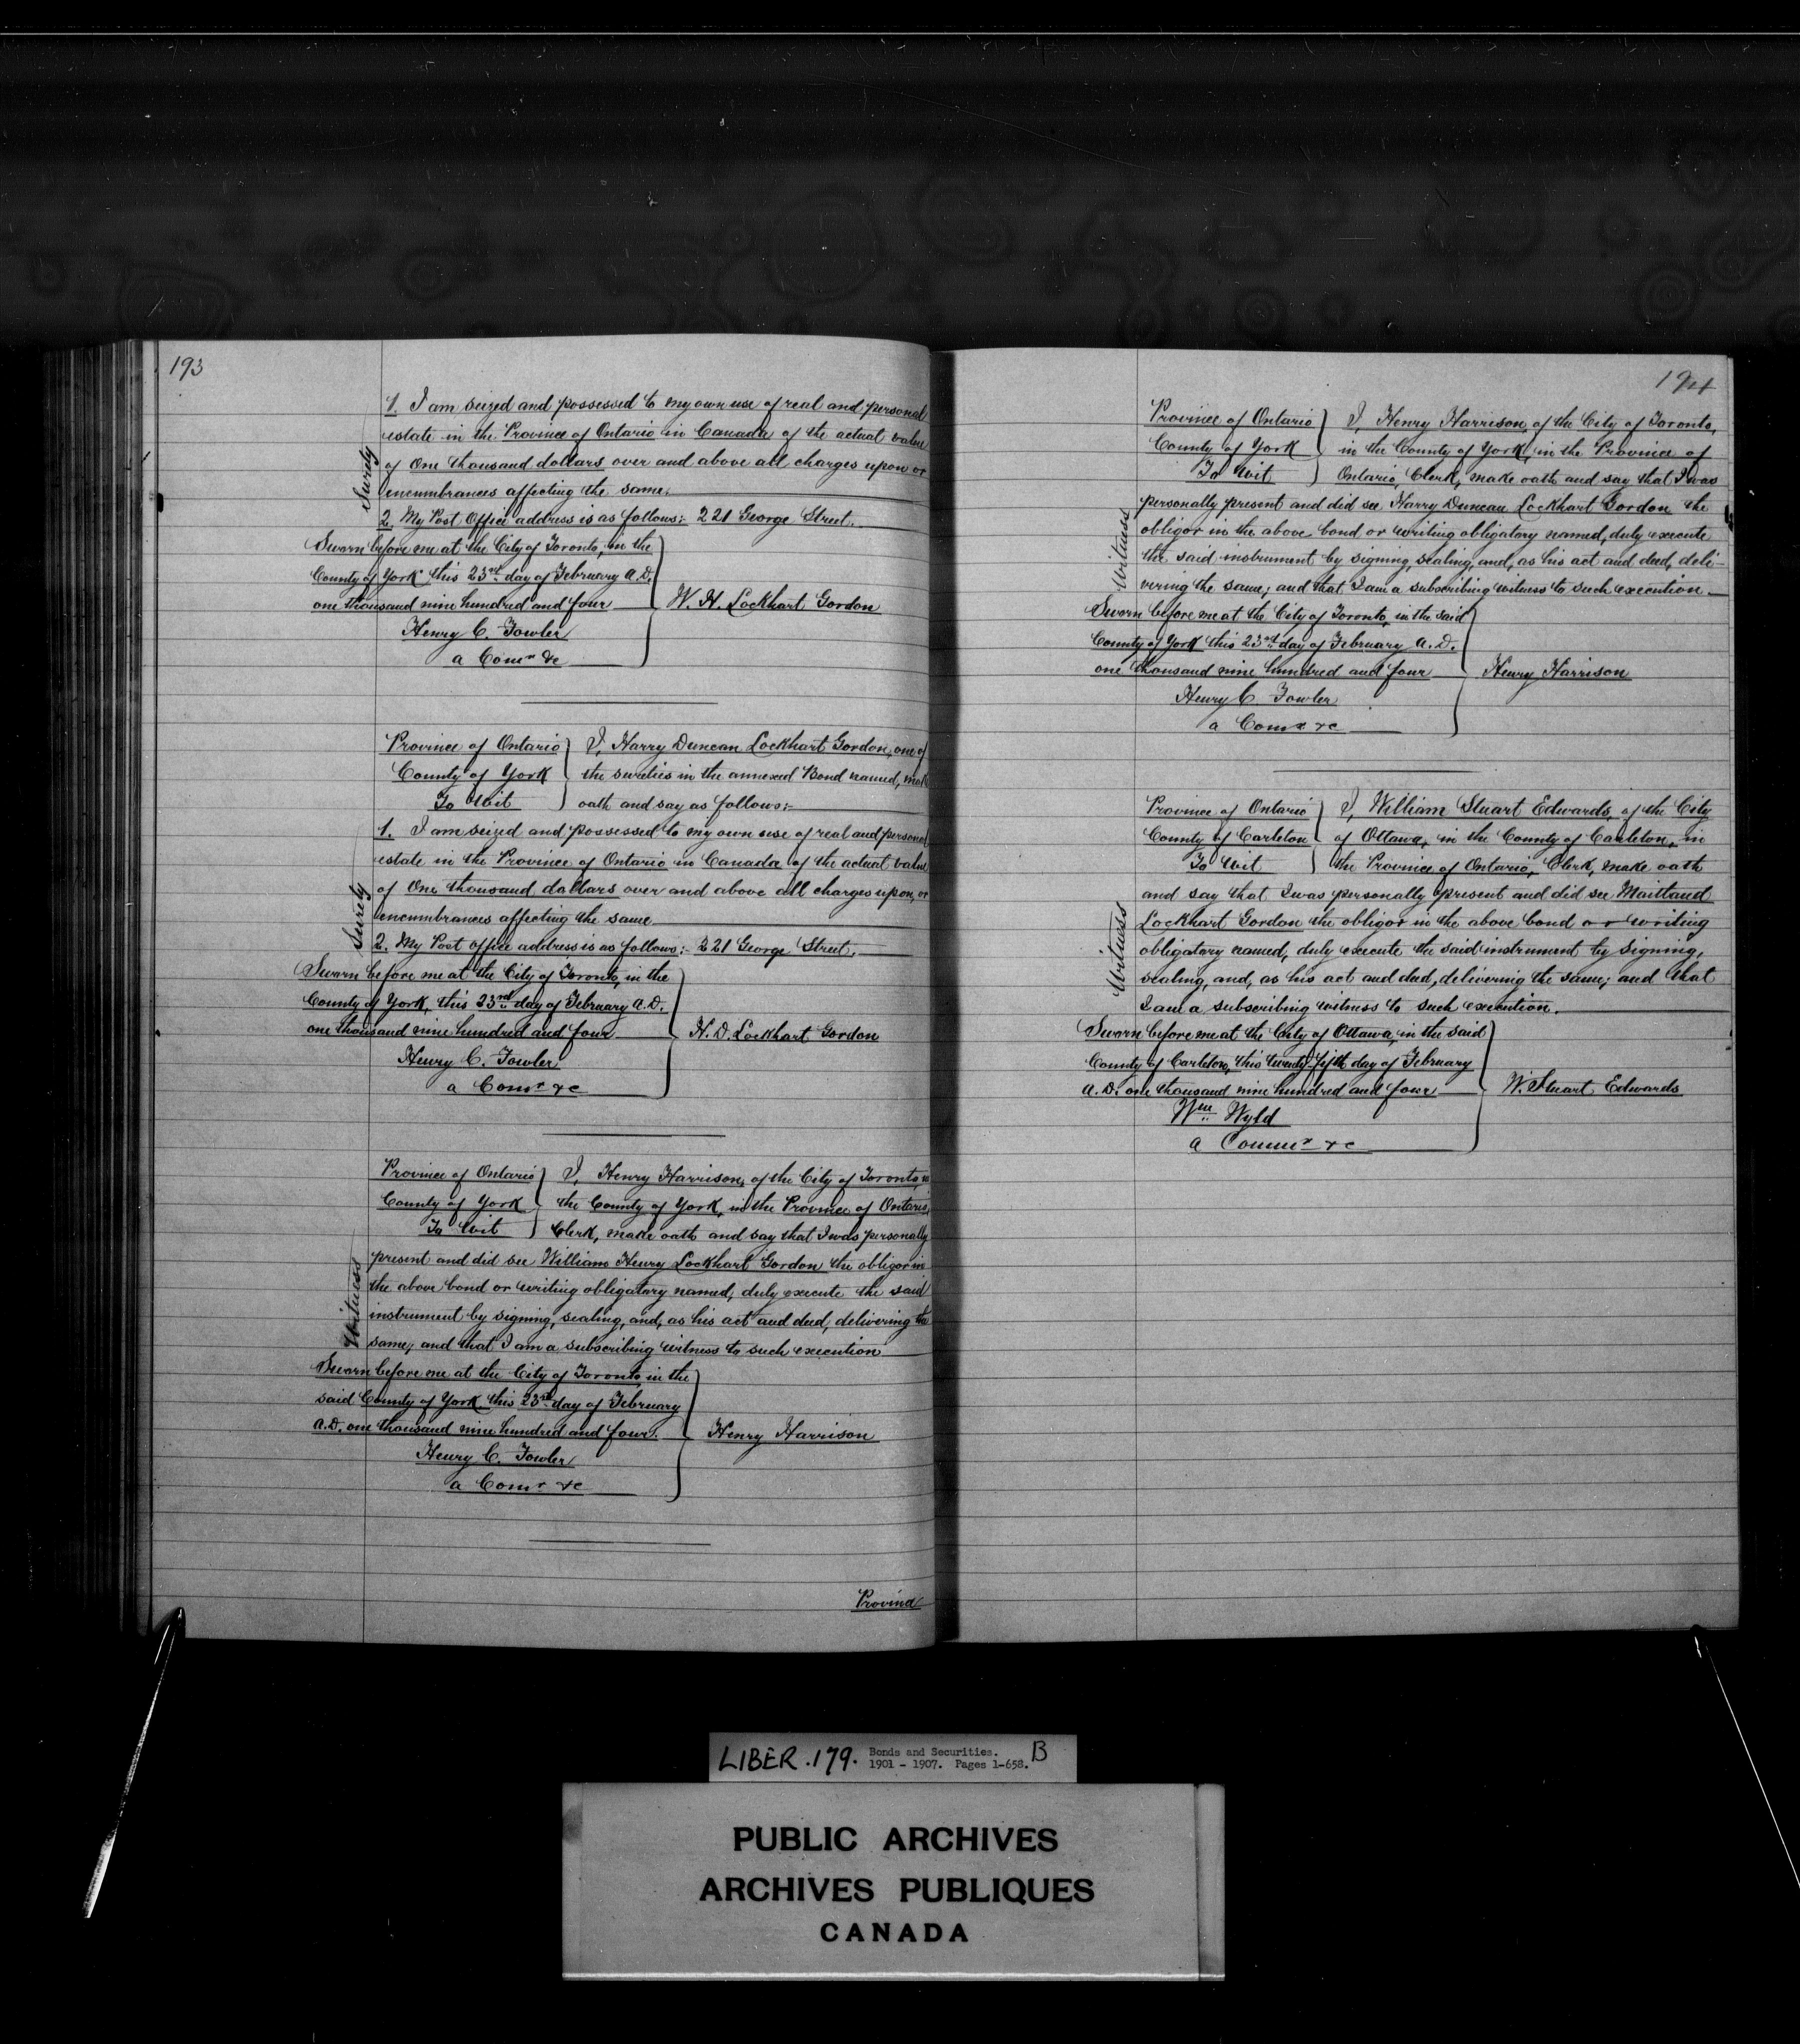 193
1. I am seized and possessed to my own use of real and personal
estate in the Province of Ontario in Canada of the actual value
of One thousand dollars over and above all charges upon or
encumbrances affecting the same.
Surety
2. My Post Office address is as follows:- 221 George Street.
Sworn before me at the City of Toronto, in the
County of York this 23rd day of February A.D.
one thousand nine hundred and four
W. H. Lockhart Gordon
Henry C. Fowler
a Comr &c
Province of Ontario
County of York
To Wit
I, Harry Duncan Lockhart Gordon, one of
the sureties in the annexed Bond named, make
oath and say as follows:-
1. I am seized and possessed to my own use of real and personal
estate in the Province of Ontario in Canada of the actual value
of One thousand dollars over and above all charges upon, or
encumbrances affecting the same
Surety
2. My Post office address is as follows:- 221 George Street.
Sworn before me at the City of Toronto, in the
County of York, this 23rd day of February A.D.
one thousand nine hundred and four
H. D. Lockhart Gordon
Henry C. Fowler
a Comr &c
Province of Ontario
County of York
To Wit
I, Henry Harrison, of the City of Toronto, in
the County of York, in the Province of Ontario,
Clerk, make oath and say that I was personally
present and did see William Henry Lockhart Gordon the obligor in
the above bond or writing obligatory named, duly execute the said
instrument by signing, sealing, and, as his act and deed, delivering the
same; and that I am a subscribing witness to such execution
Witness
Sworn before me at the City of Toronto, in the
said County of York this 23rd day of February
A.D. one thousand nine hundred and four.
Henry Harrison
Henry C. Fowler
a Comr &c
Province
194
Province of Ontario
County of York
To Wit
I, Henry Harrison, of the City of Toronto,
in the County of York, in the Province of
Ontario, Clerk, make oath and say that I was
personally present and did see Harry Duncan Lockhart Gordon the
obligor in the above bond or writing obligatory named, duly execute
the said instrument by signing, sealing, and, as his act and deed, deli-
vering the same; and that I am a subscribing witness to such execution.
Witness
Sworn before me at the City of Toronto, in the said
County of York this 23rd day of February A.D.
one thousand nine hundred and four
Henry Harrison
Henry C. Fowler
a Comr &c
Province of Ontario
County of Carleton
To Wit
I, William Stuart Edwards, of the City
of Ottawa, in the County of Carleton, in
the Province of Ontario, Clerk, make oath
and say that I was personally present and did see Maitland
Lockhart Gordon the obligor in the above bond or writing
obligatory named, duly execute the said instrument by signing,
sealing, and, as his act and deed, delivering the same; and that
I am a subscribing witness to such execution.
Witness
Sworn before me at the City of Ottawa, in the said
County of Carleton, this twenty-fifth day of February
A.D. one thousand nine hundred and four
W. Stuart Edwards
Wm Wyld
a Commr &c
LIBER .179. Bonds and Securities.
1901 - 1907. Pages 1-658. B
PUBLIC ARCHIVES
ARCHIVES PUBLIQUES
CANADA